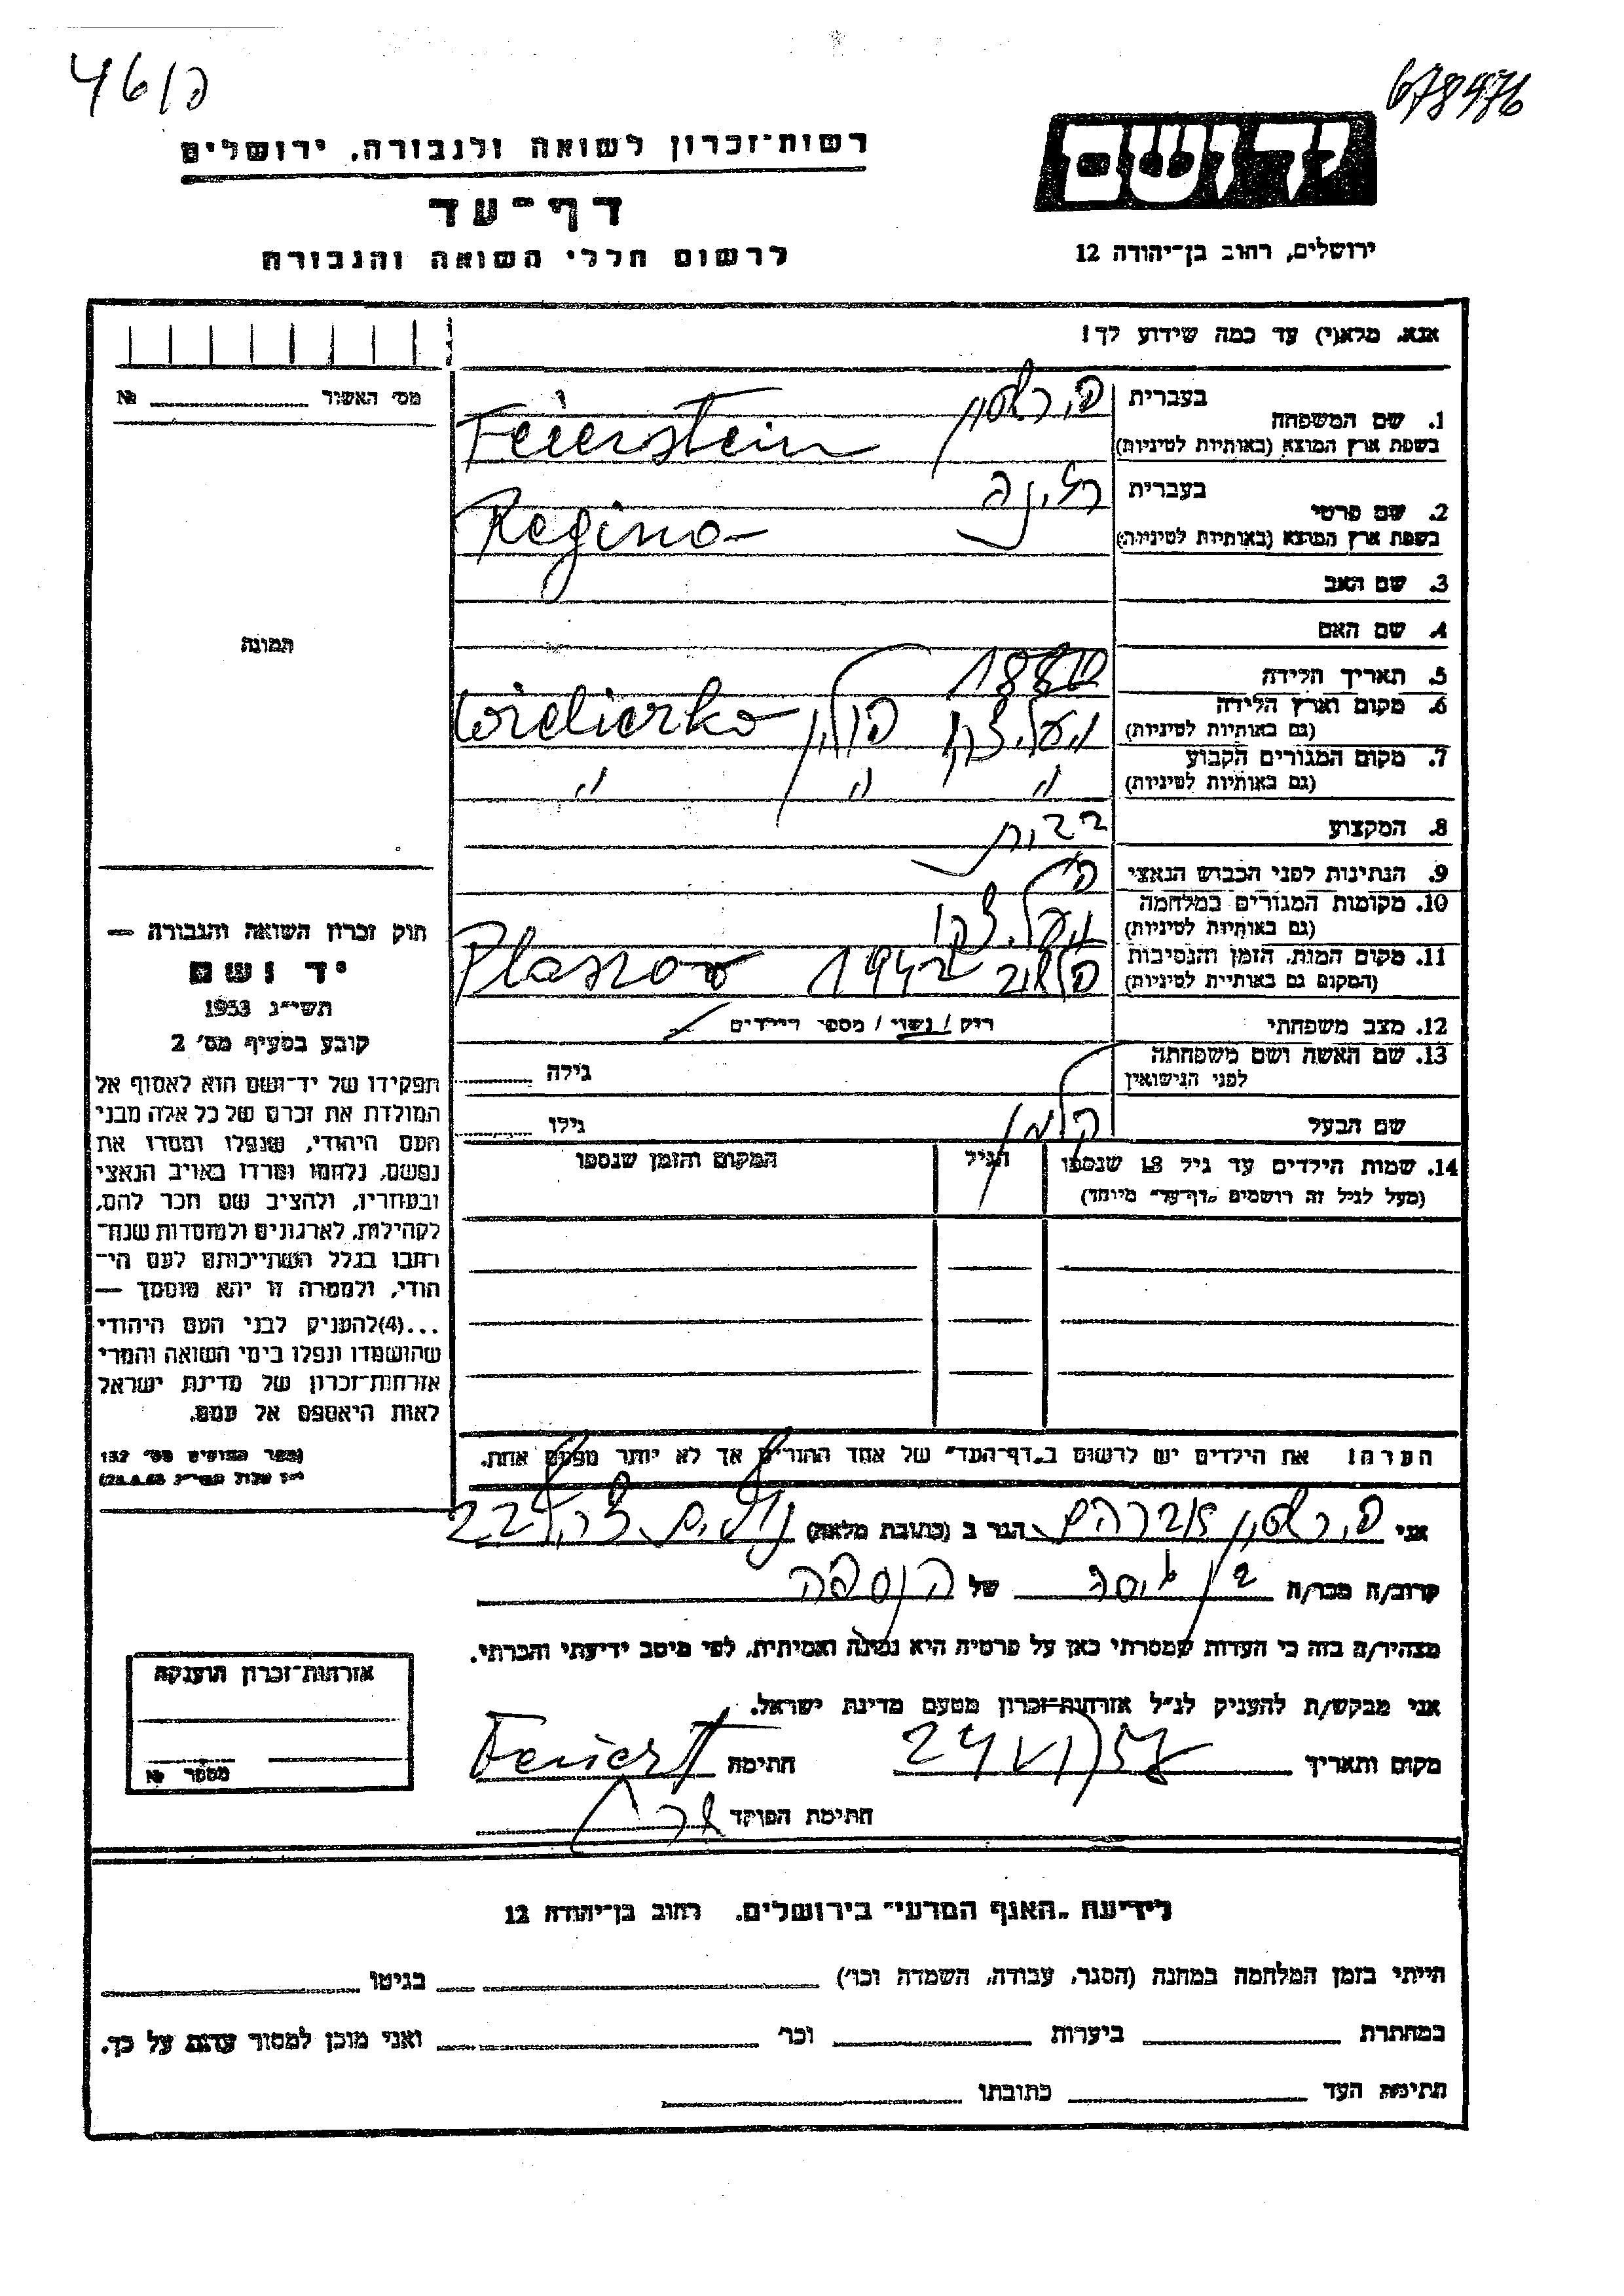 46/ה
678476
רשות־זכרון לשואה ולגבורה, ירושלים
דף־עד
לרשום חללי השואה והגבורה
יד ושם
ירושלים, רחוב בן־יהודה 12
אנא, מלא(י) עד כמה שידוע לך!
מס׳ האשור № 
1. שם המשפחה
בעברית
בשפת ארץ המוצא (באותיות לטיניות)
Feierstein
2. שם פרטי
בעברית
רגינה
בשפת ארץ המוצא (באותיות לטיניות)
Regina
3. שם האב
4. שם האם
תמונה
5. תאריך הלידה
6. מקום וארץ הלידה
(גם באותיות לטיניות)
פולין Wieliczka
7. מקום המגורים הקבוע
(גם באותיות לטיניות)
" " "
8. המקצוע
9. הנתינות לפני הכבוש הנאצי
10. מקומות המגורים במלחמה
(גם באותיות לטיניות)
11. מקום המות, הזמן והנסיבות
(המקום גם באותיות לטיניות)
1942 Plaszow
12. מצב משפחתי
רוק / נשוי / מספר הילדים
13. שם האשה ושם משפחתה
לפני הנישואין
גילה
שם הבעל
קלמן
גילו
14. שמות הילדים עד גיל 18 שנספו
(מעל לגיל זה רושמים „דף־עד" מיוחד)
הגיל
המקום והזמן שנספו
חוק זכרון השואה והגבורה —
יד ושם
תשי״ג 1953
קובע בסעיף מס׳ 2
תפקידו של יד־ושם הוא לאסוף אל
המולדת את זכרם של כל אלה מבני
העם היהודי, שנפלו ומסרו את
נפשם, נלחמו ומרדו באויב הנאצי
ובעוזריו, ולהציב שם וזכר להם,
לקהילות, לארגונים ולמוסדות שנח־
רבו בגלל השתייכותם לעם הי־
הודי, ולמטרה זו יהא מוסמך —
...(4)להעניק לבני העם היהודי
שהושמדו ונפלו בימי השואה והמרי
אזרחות־זכרון של מדינת ישראל
לאות היאספם אל עמם.
(ספר החוקים מס׳ 132
הערה! את הילדים יש לרשום ב„דף־העד" של אחד ההורים אך לא יותר מפעם אחת.
אני פירשטין אברהם הגר ב (כתובת מלאה)
קרוב/ה מכר/ה בן של הנספה
מצהיר/ה בזה כי העדות שמסרתי כאן על פרטיה היא נכונה ואמיתית, לפי מיטב ידיעתי והכרתי.
אני מבקש/ת להעניק לנ״ל אזרחות־זכרון מטעם מדינת ישראל.
מקום ותאריך 24/VI/57 חתימה
חתימת הפוקד
אזרחות־זכרון הוענקה
מספר №
לידיעת „האגף המדעי" בירושלים, רחוב בן־יהודה 12
הייתי בזמן המלחמה במחנה (הסגר, עבודה, השמדה וכו׳) בגיטו
במחתרת ביערות וכו׳ ואני מוכן למסור עדות על כך.
חתימת העד כתובתו